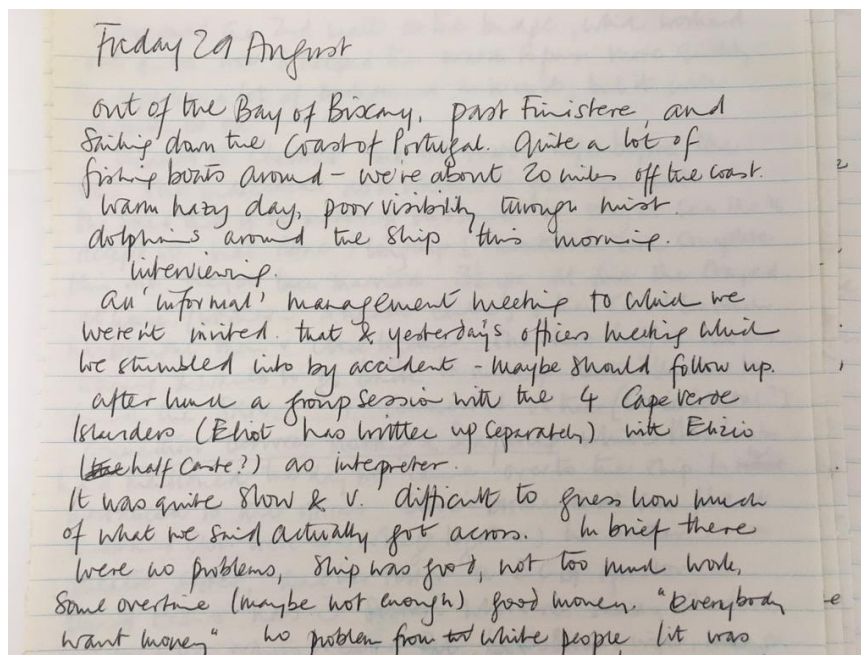 Friday 29 August
out of the Bay of Biscany, past Finistere, and
Sailing down the Coast of Portugal. Quite a lot of
fishing boats around - we're about 20 miles off the coast.
Warm hazy day, poor visibility through mist.
dolphins around the ship this morning.
Interviewing.
An 'informal' management meeting to which we
weren't invited. that & yesterday's officers meeting which
we stumbled into by accident - maybe should follow up.
after lunch a group session with the 4 Cape Verde
Islanders (Eliot has written up separately) with Elizio
(half caste?) as interpreter.
It was quite slow & v. difficult to guess how much
of what we said actually got across. In brief there
were no problems, ship was good, not too much work,
some overtime (maybe not enough) good money. "Everybody
want money" no problem from white people, (it was